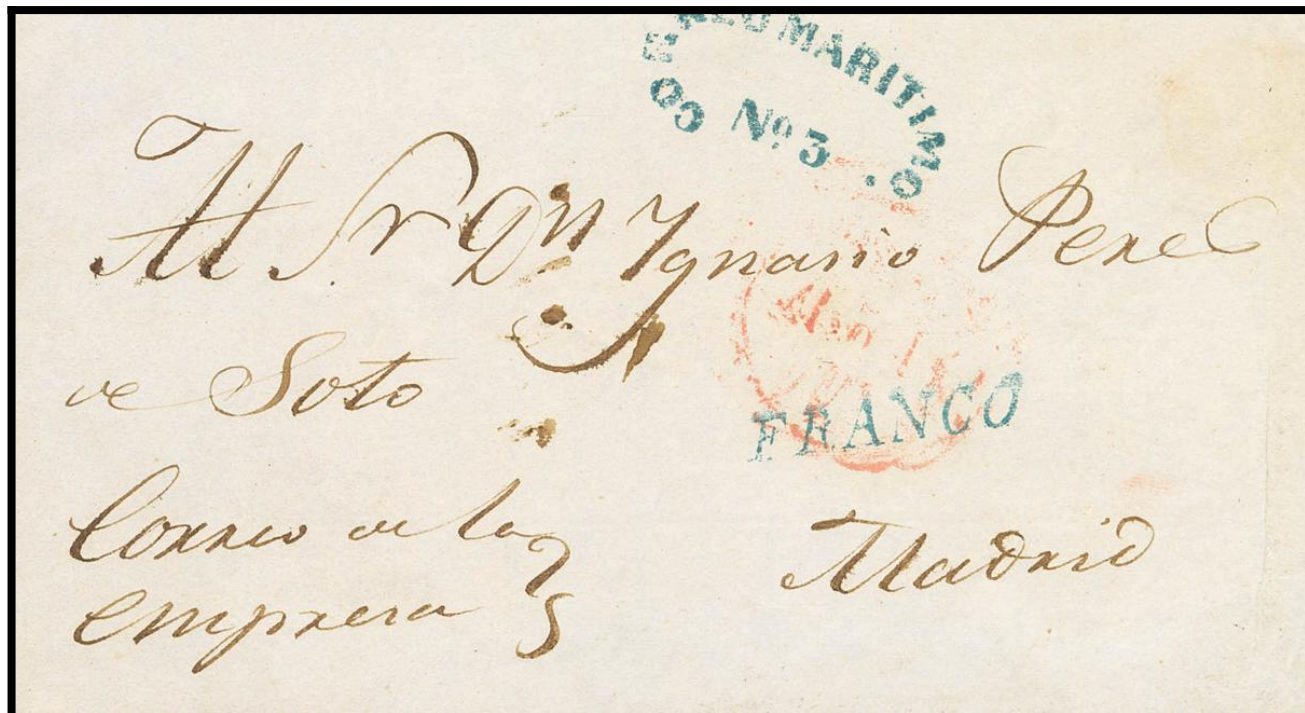 CORREO MARITIMO
Nº 3
Al Sr Dn Ygnasio Perez
de Soto
FRANCO
Correo de la
empresa
Madrid